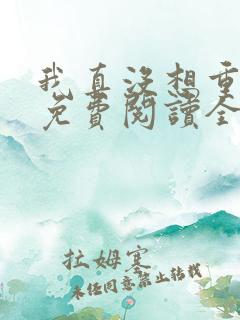 我真沒想重
免費閱讀全
拉姆寒
未经同意禁止转载